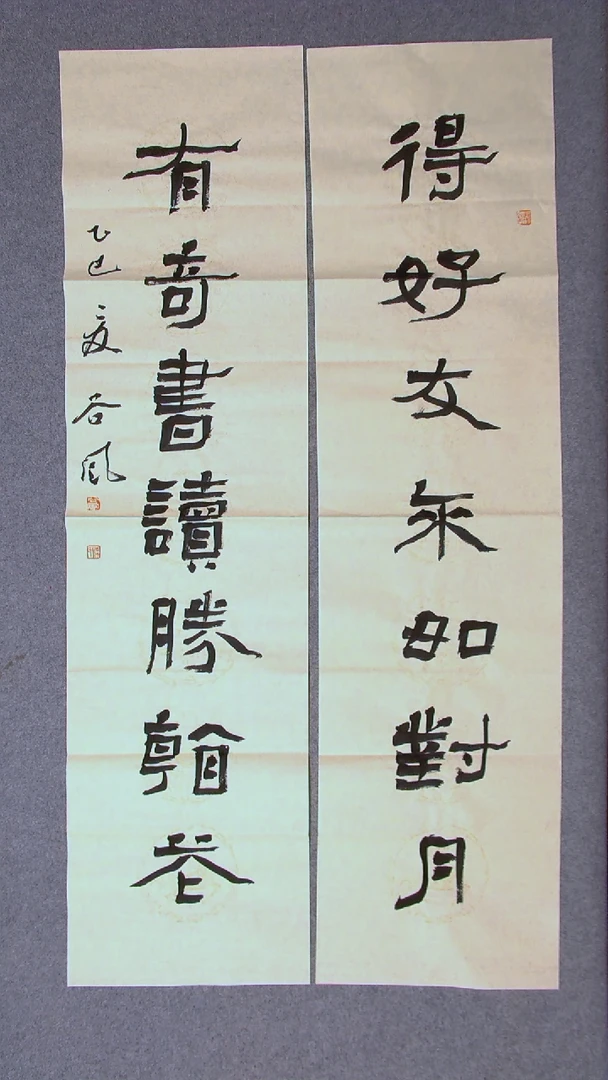 得好友来如對月
有奇書讀勝看花
乙巳夏谷風